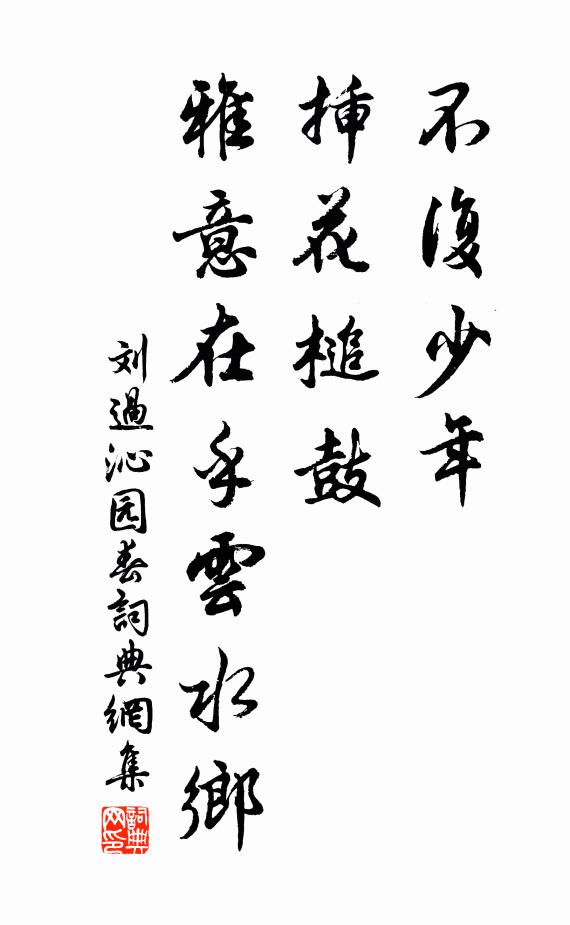 不復少年
揷花槌鼓
雅意在乎雲水鄉
刘過沁园春詞典網集
詞典网印